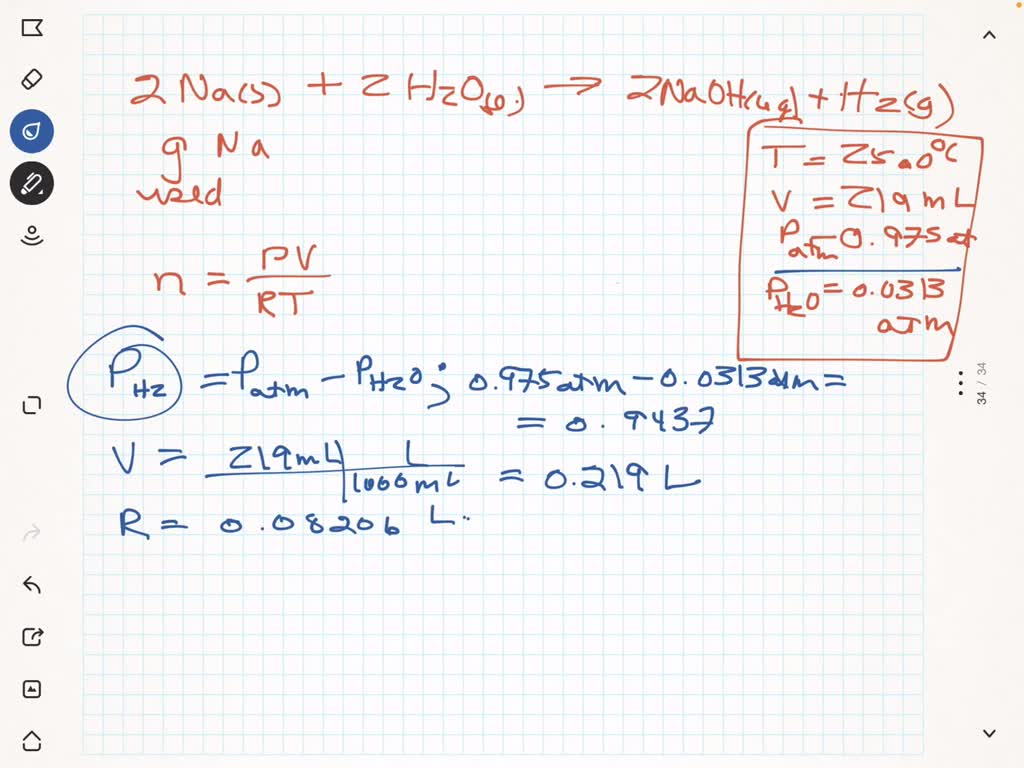 2 Na(s) + 2 H2O(l) → 2NaOH(aq) + H2(g)
g Na
used
T = 25.0°C
V = 219 mL
Patm = 0.975 at
PH2O = 0.0313
atm
n = PV
RT
PH2 = Patm - PH2O ; 0.975 atm - 0.0313 atm =
= 0.9437
V = 219 mL L
1000 mL = 0.219 L
R = 0.08206 L.
34 / 34